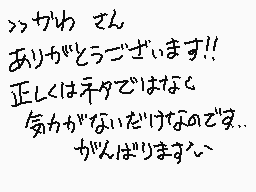 >>がわ さん
ありがとうございます!!
正しくはネタではなく
気力がないだけなのです..
がんばります^^